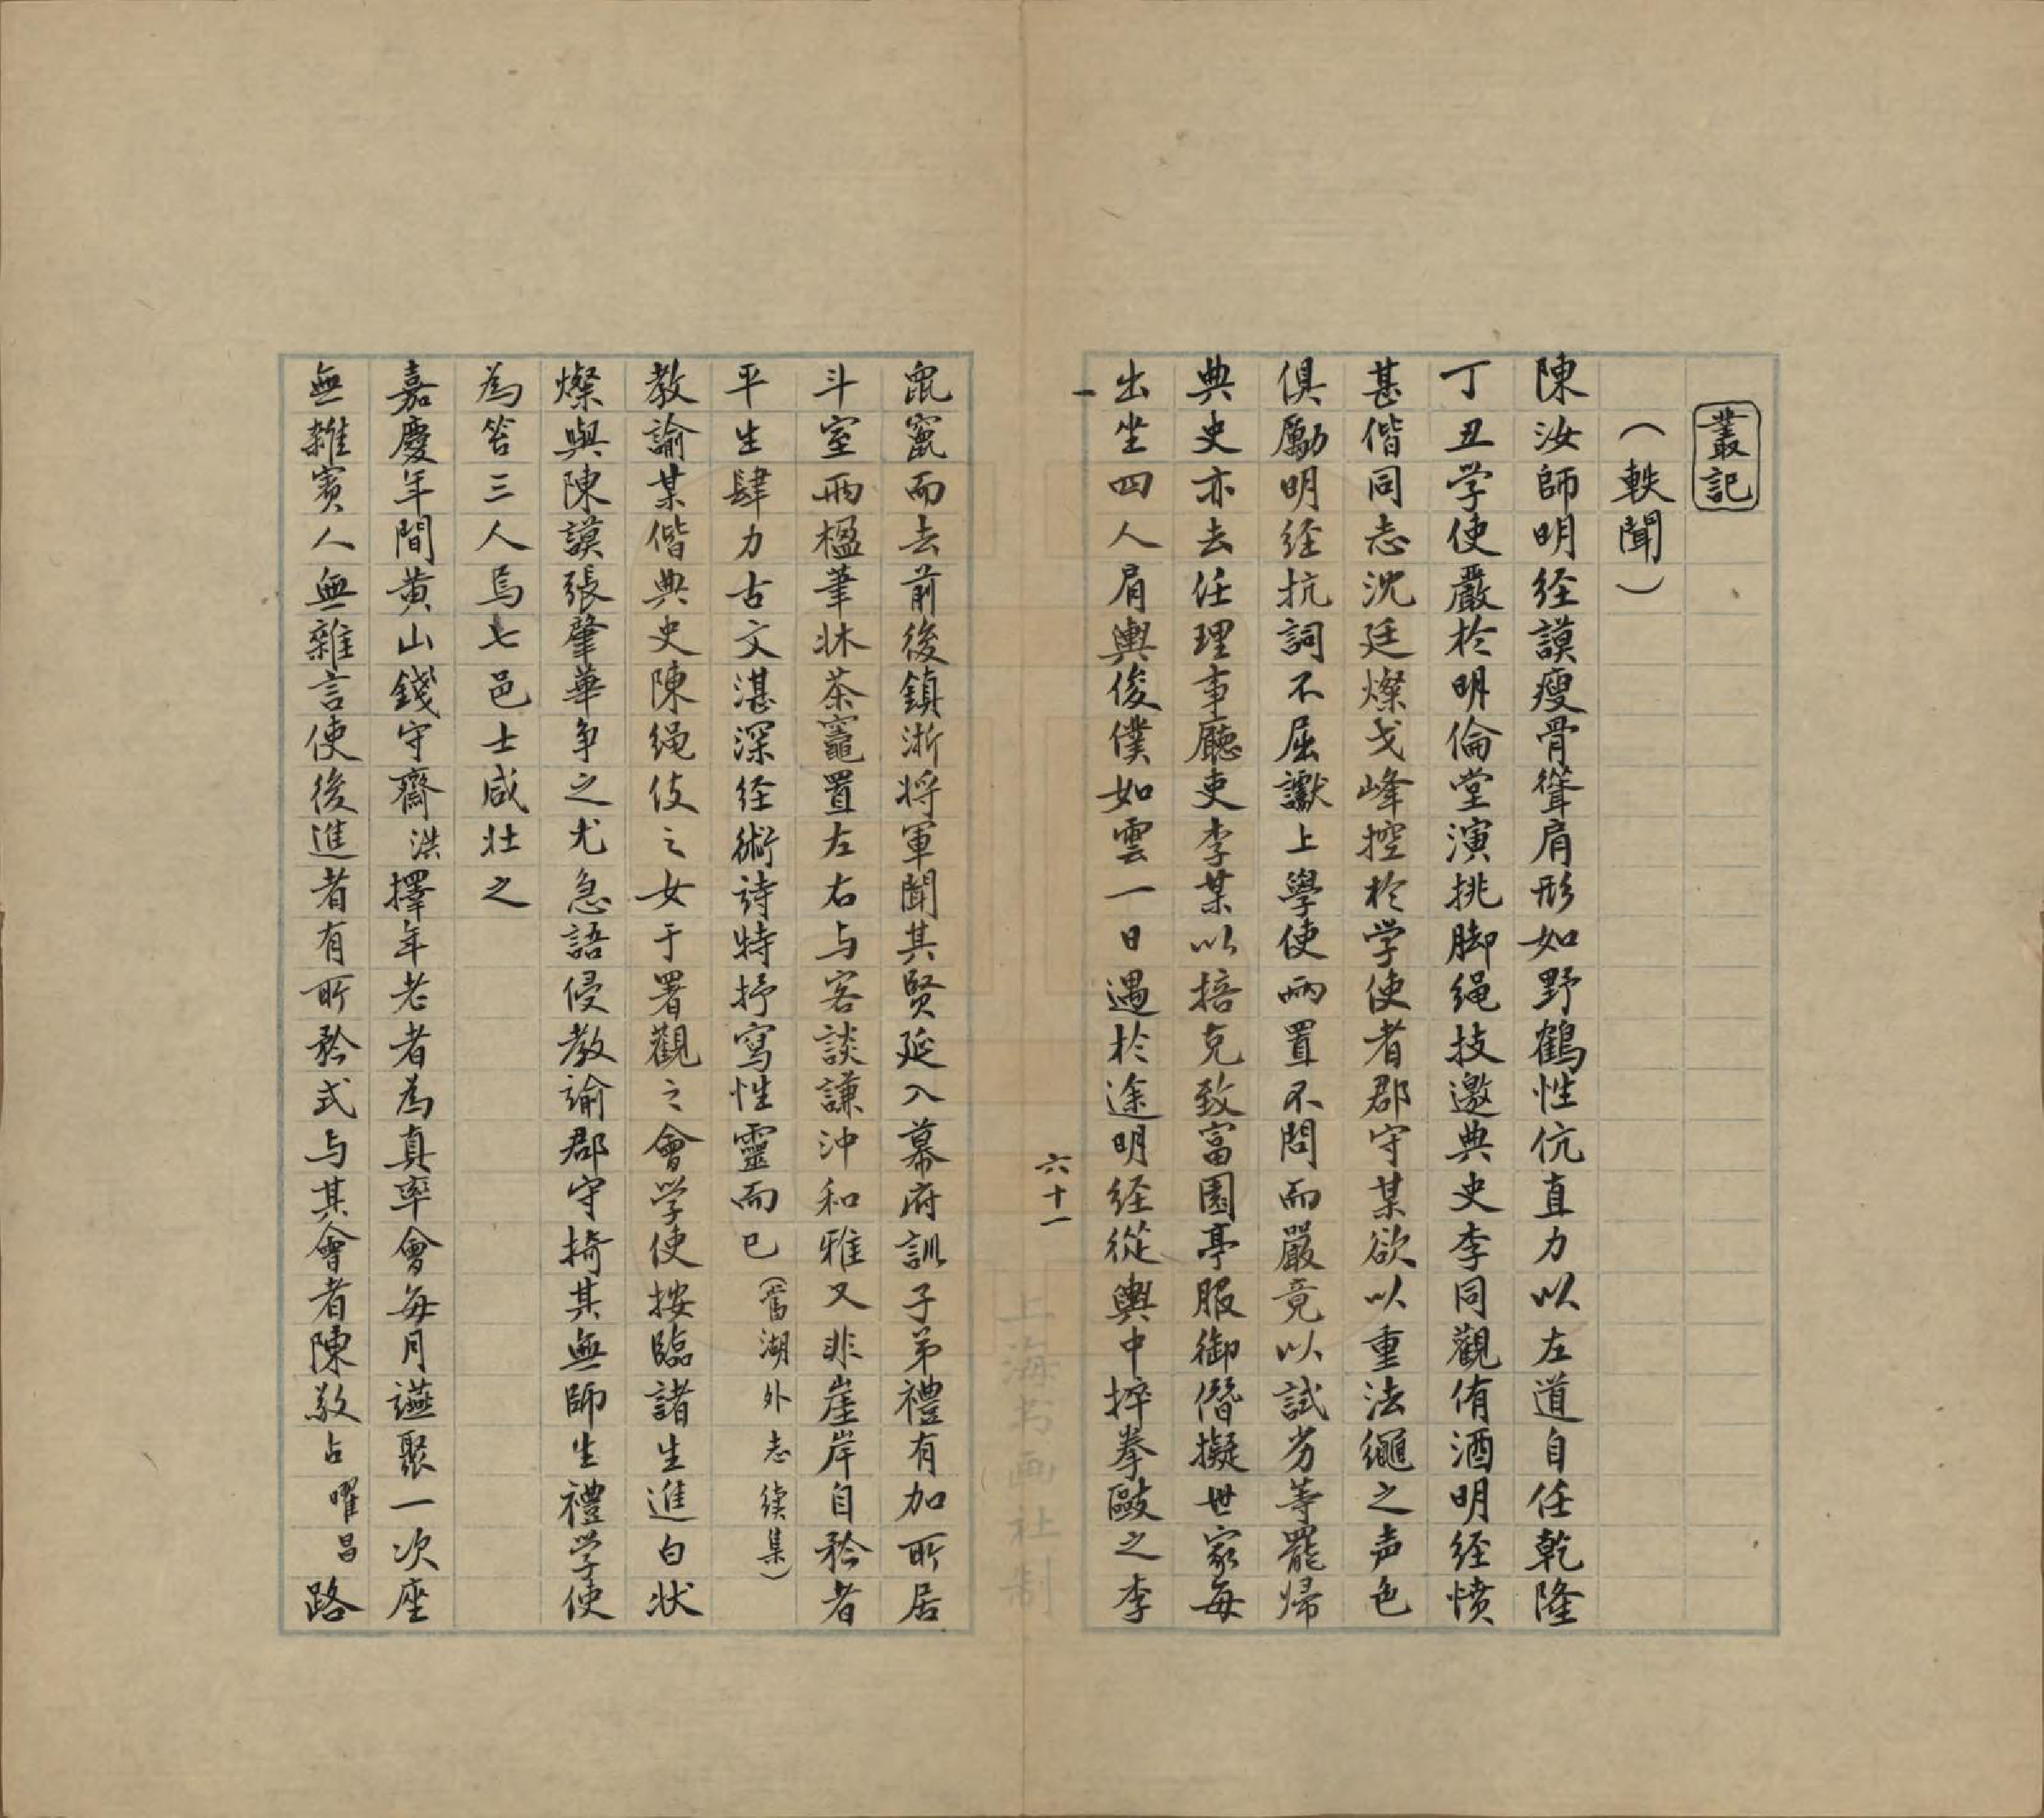 叢記
（軼聞）
陳汝師明经謨瘦骨聳肩形如野鶴性伉直力以左道自任乾隆
丁丑学使嚴於明倫堂演挑脚绳技邀典史李同觀侑酒明経憤
甚偕同志沈廷燦戈峰控於学使者郡守某欲以重法繩之声色
俱厲明经抗詞不屈讞上學使両置不問而嚴竟以試劣等罷歸
典史亦去任理事廳吏李某以掊克致富園亭服御僭擬世家每
出坐四人肩輿俊僕如雲一日遇於途明経從輿中捽拳毆之李
一
六十一
鼠竄而去前後鎮浙将軍聞其賢延入幕府訓子弟禮有加所居
斗室両楹筆牀茶竈置左右与客談謙沖和雅又非崖岸自矜者
平生肆力古文湛深経術詩特抒寫性靈而已（當湖外志续集）
教諭某偕典史陳绳伎之女于署觀之會学使按臨諸生進白状
燦與陳謨張肇華争之尤急語侵教諭郡守掎其無師生禮学使
為笞三人焉七邑士咸壮之
嘉慶年間黄山錢守齋洪擇年老者為真率會每月讌聚一次座
無雜賓人無雜言使後進者有所矜式与其會者陳敬占曜昌路
上海书画社制